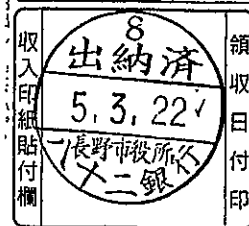 収入印紙貼付欄
8
出納済
5.3.22
長野市役所
八十二銀行
領収日付印